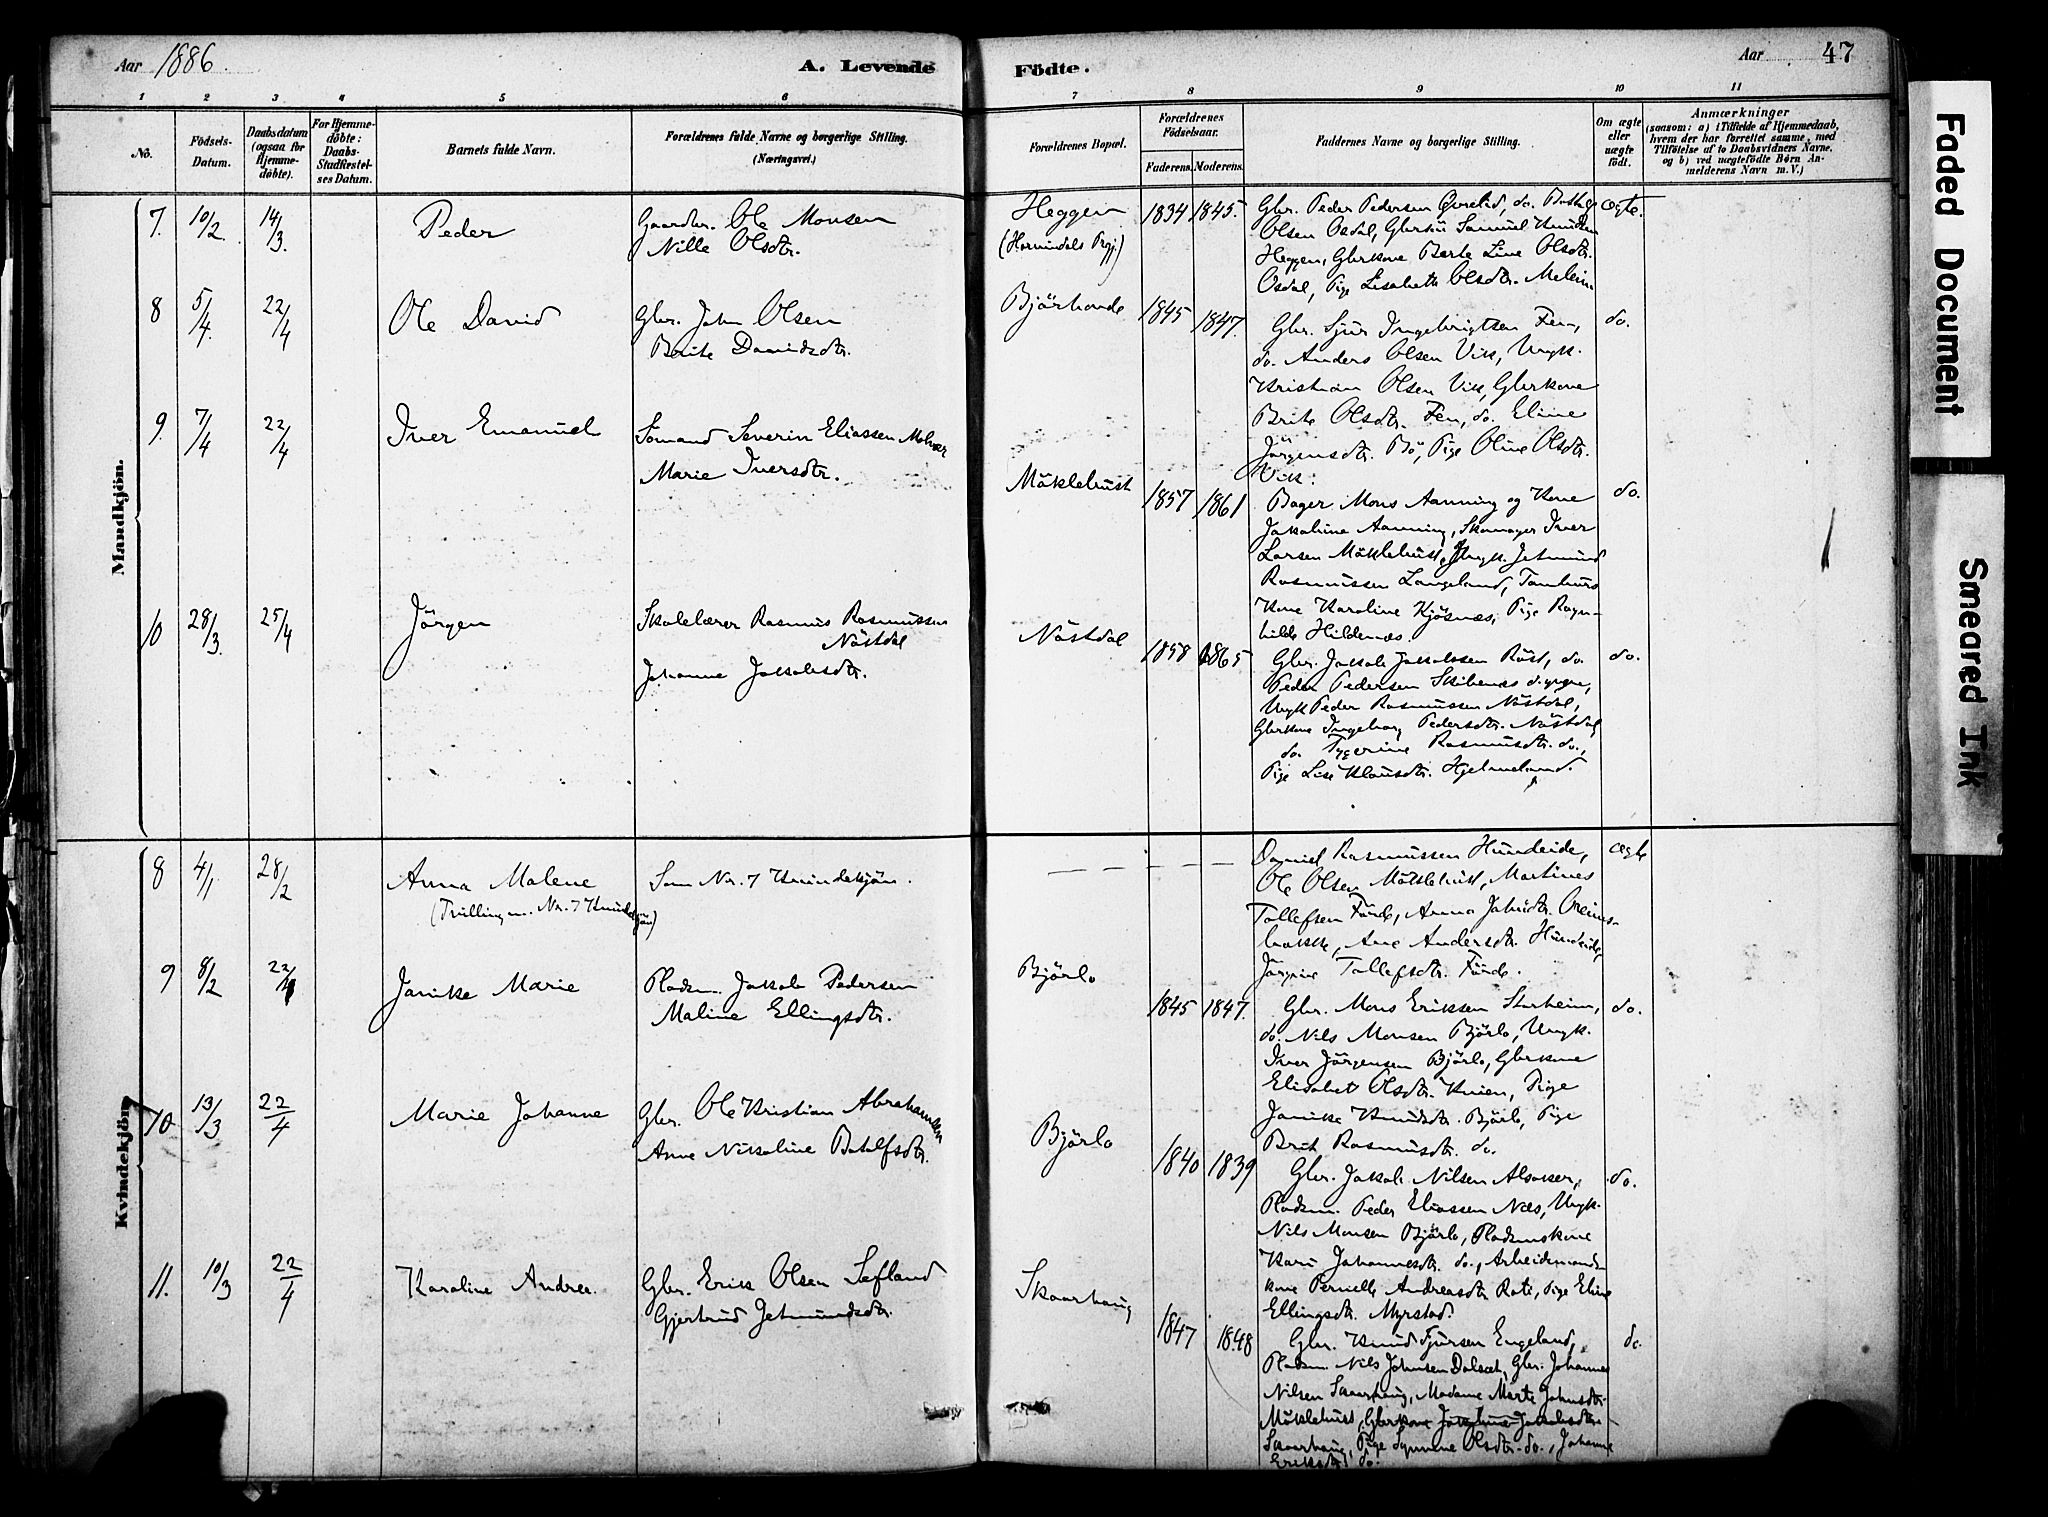 Aar 1886.
A. Levende Födte.
Aar 47
1 2 3 4 5 6 7 8 9 10 11
No.
Födsels-Datum.
Daabsdatum (ogsaa for Hjemme-döbte).
For Hjemme-döbte: Daabs-Stadfæstel-ses Datum.
Barnets fulde Navn.
Forældrenes fulde Navne og borgerlige Stilling. (Næringsvei.)
Forældrenes Bopæl.
Forældrenes Födselsaar.
Faderens. Moderens.
Faddernes Navne og borgerlige Stilling.
Om ægte eller uægte födt.
Anmærkninger
(saasom: a) i Tilfælde af Hjemmedaab, hvem der har forrettet samme, med Tilföielse af to Daabsvidners Navne, og b) ved uægtefödte Börn An-melderens Navn m. V.)
Mandkjön.
7. 10/2. 14/3. Peder
Gaardbr. Ole Monsen
Nille Olsdtr.
Heggen
(Hornindals Prgj.)
1834 1845.
Gbr. Peder Pedersen Øvrelid, do.
Olsen Osdal, Samuel Knudsen
Heggen, Gbrkone Berte Line Olsdtr.
Osdal, Pige Lisabeth Olsdtr.
ægte.
8 5/4. 22/4 Ole David
Gbr. John Olsen
Brite Davidsdtr.
1845 1847.
Gbr. Sjur Ingebrigtsen Fen,
do. Anders Olsen Vik, Ungk.
Kristian Olsen Vik, Gbrkone
Brite Olsdtr. Fen, do. Eline
Jörgensdtr. Bö, Pige Oline Olsdtr.
Vik.
do.
9. 7/4 22/4 Iver Emanuel
Sömand Severin Eliassen Melvær
Marie Iversdtr.
Möklebust
1857 1861
Bager Mons Aanning og Kone
Jakobine Aanning, Skomager Iver
Larsen Möklebust, Ungk. Jetmund
Rasmussen Langeland,
Kone Karoline Kjösnæs, Pige Ragn-
hilde Hildenæs.
do.
10 28/3. 25/4 Jörgen
Skolelærer Rasmus Rasmussen
Nöstdal
Johanne Jakobsdtr.
Nöstdal
1858 1865
Gbr. Jakob Jakobsen Röst, do.
Peder Pedersen Skibenes
Ungk. Peder Rasmussen Nöstdal,
Gbrkone Ingeborg Pedersdtr. Nöstdal,
do. Rasmusdtr. do.,
Pige Lise Klausdtr. Hjelmeland.
do.
Kvindekjön.
8 4/1. 28/2 Anna Malene
(Trilling m. No. 7 Kvindekjön)
Som No. 7 Kvindekjön.
— — — —
Daniel Rasmussen Hundeide,
Ole Olsen Möklebust, Martines
Tollefsen Förde, Anna Johnsdtr.
bakke, Ane Andersdtr. Hundeide,
Jörgine Tollefsdtr. Förde.
ægte
9 8/2 22/4 Janike Marie
Pladsm. Jakob Pedersen
Maline Ellingsdtr.
Björlo
1845 1847.
Gbr. Mons Eriksen Storheim,
do. Nils Monsen Björlo, Ungk.
Iver Jörgensen Björlo, Gbrkone
Elisabet Olsdtr. Pige
Janike Knudsdtr. Björlo, Pige
Brit Rasmusdtr. do.
do.
10 13/3 22/4 Marie Johanne
Gbr. Ole Kristian Abrahamsen
Anne Nikoline Botolfsdtr.
Björlo
1840 1839
Gbr. Jakob Nilsen Alsaker,
Pladsm. Peder Eliassen Næs, Ungk.
Nils Monsen Björlo, Pladsmskone
Kari Johannesdtr. do., Arbeidsmands-
kone Pernille Andreasdtr. Rote, Pige Eline
Ellingsdtr. Myrstad.
do.
11. 10/3 22/4 Karoline Andrea.
Gbr. Erik Olsen Sefland
Gjertrud Jetmundsdtr.
Skaarhaug
1847 1848
Gbr. Knud Sjursen Engeland,
Pladsm. Nils Johnsen Dalsæt, Gbr. Johannes
Nilsen Skaarhaug, Madame Marte Johnsdtr.
Möklebust, Gbrkone Jakobine Jakobsdtr.
Skaarhaug, Pige Synneve Olsdtr. do., Johanne
Eriksdtr. do.
do.
Faded Document
Smeared Ink